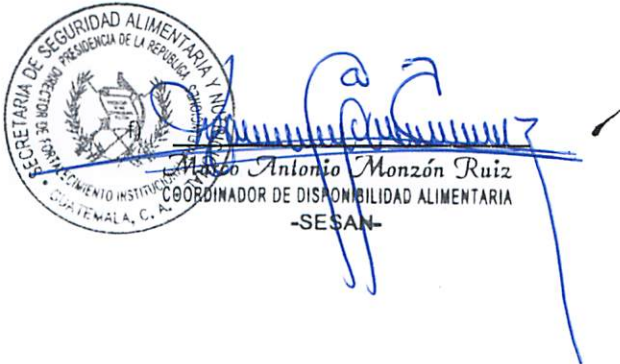 SECRETARIA DE SEGURIDAD ALIMENTARIA Y NUTRICIONAL
PRESIDENCIA DE LA REPUBLICA
DIRECTOR DE
FORTALECIMIENTO INSTITUCIONAL
GUATEMALA, C. A.
f)
Marco Antonio Monzón Ruiz
COORDINADOR DE DISPONIBILIDAD ALIMENTARIA
-SESAN-